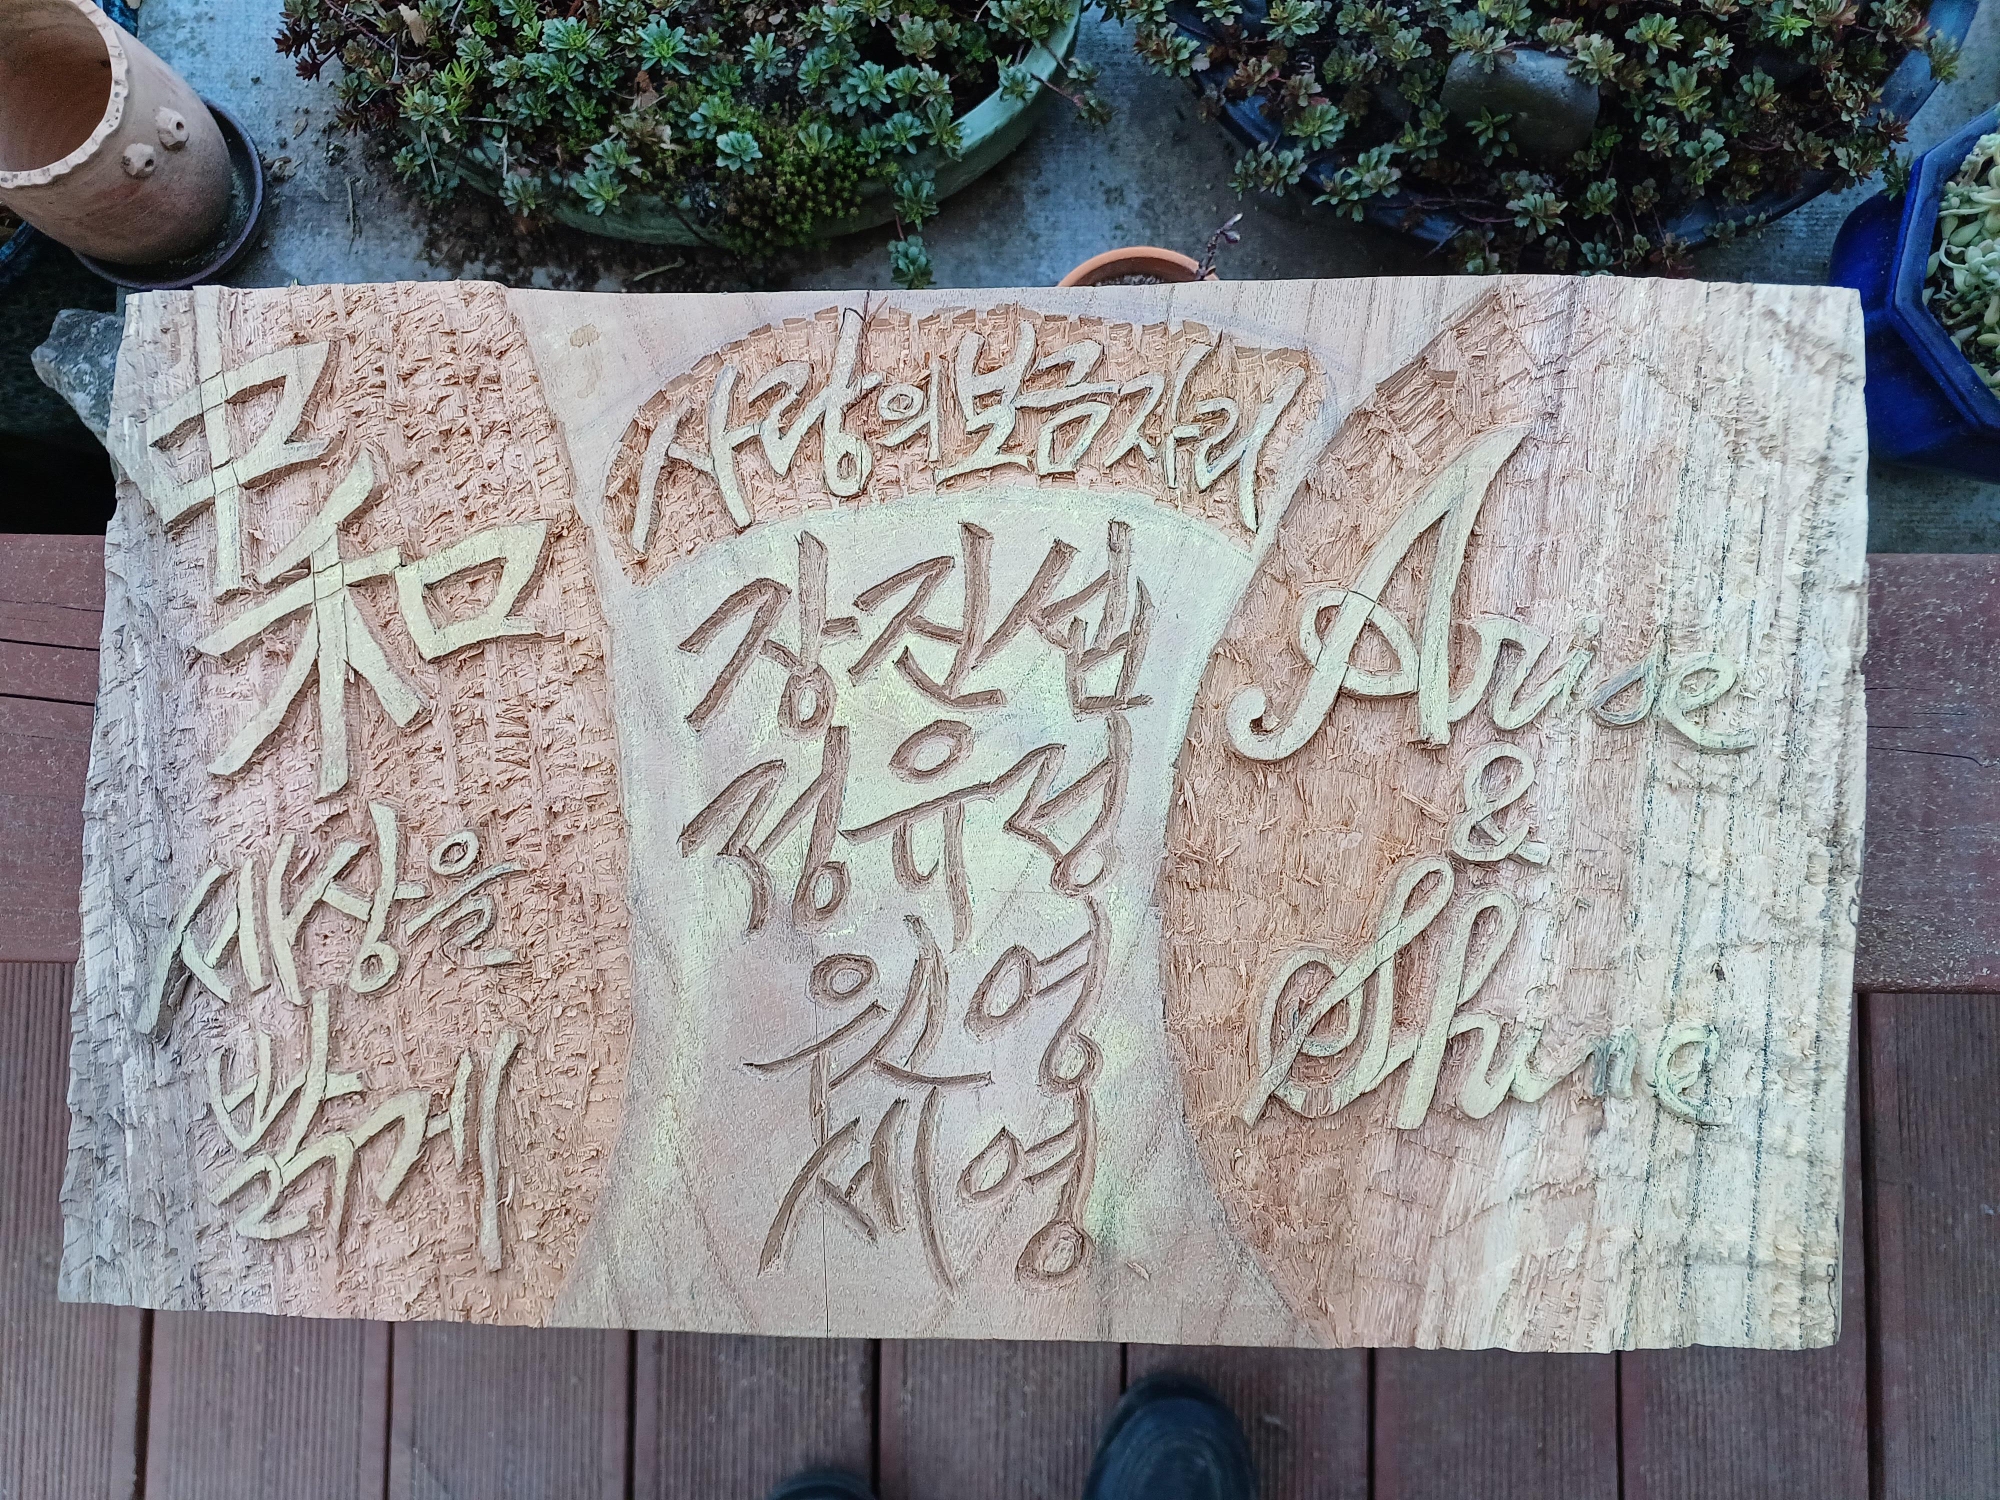 中和
세상을
밝게
사랑의보금자리
장진섭
정유정
우영
세영
Arise
&
Shine